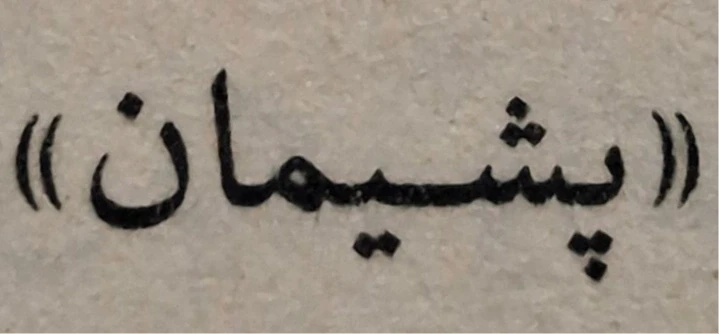 «پشیمان»